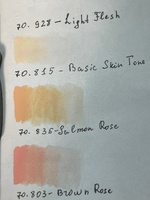 70.928 - Light Flesh
70.815 - Basic Skin Tone
70.835 - Salmon Rose
70.803 - Brown Rose